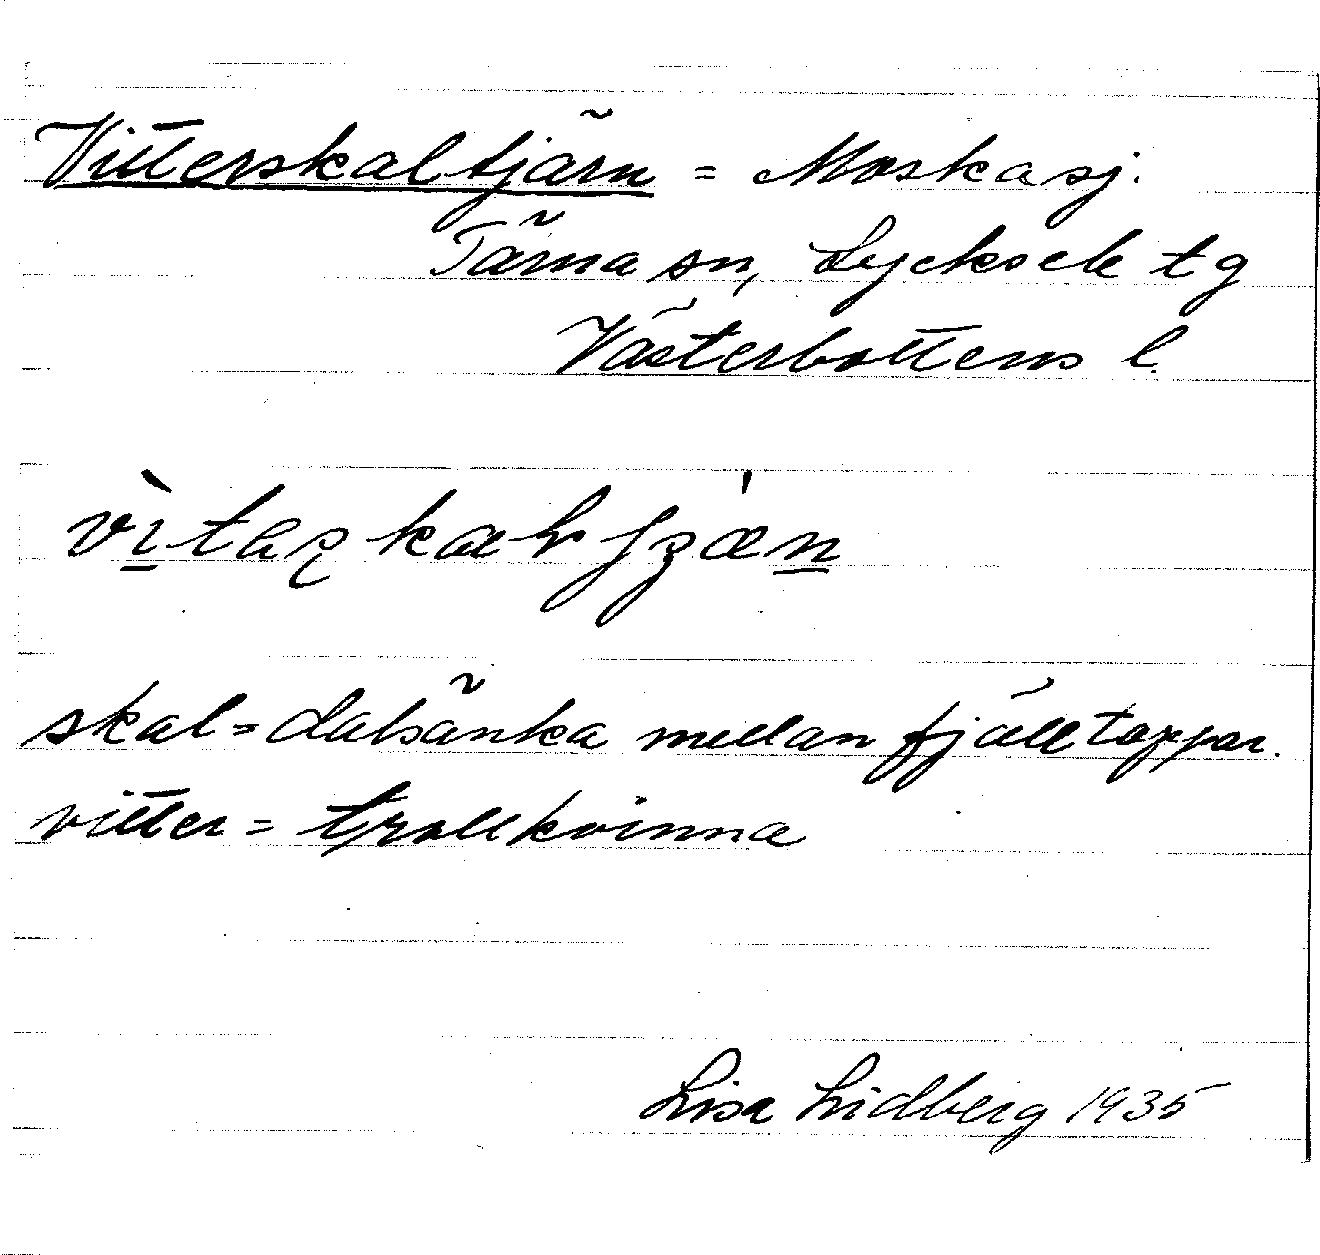 Vitterskaltjärn = Moskasj.
Tärna sn, Lycksele tg
Västerbottens l.
skal = dalsänka mellan fjälltoppar.
vitter = trollkvinna
Lisa Lidberg 1935